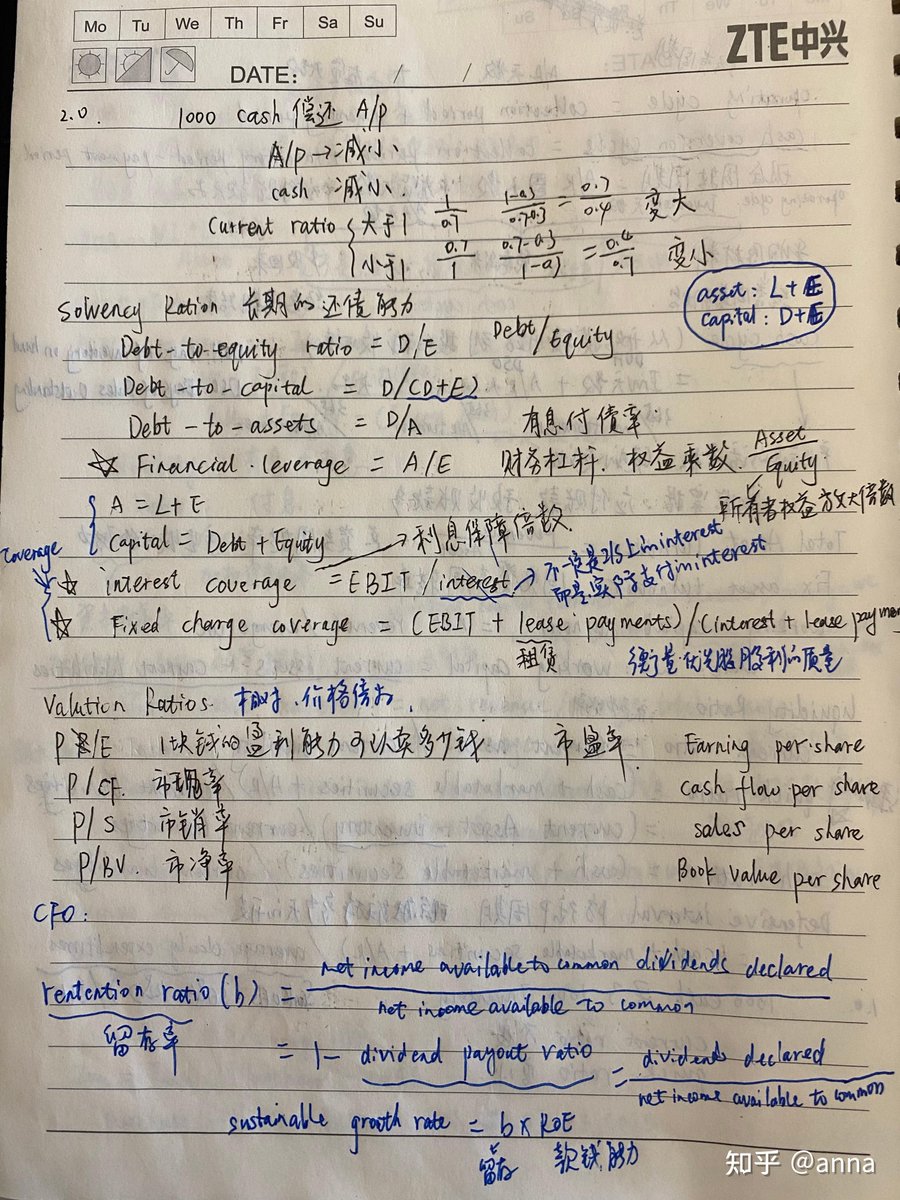 Mo Tu We Th Fr Sa Su
ZTE中兴
DATE: / /
2.0. 1000 cash 偿还 A/p
A/p → 减小
cash 减小.
Current ratio { 大于1 1/0.7 (1-0.3)/(0.7-0.3) = 0.7/0.4 变大
小于1 0.7/1 (0.7-0.3)/(1-0.3) = 0.4/0.7 变小
asset: L+E
capital: D+E
Solvency Ration 长期的还债能力
Debt-to-equity ratio = D/E Debt/Equity
Debt-to-capital = D/(D+E)
Debt-to-assets = D/A 有息付债率
☆ Financial leverage = A/E 财务杠杆. 权益乘数. Asset/Equity
所有者权益放大倍数
A = L+E
capital = Debt + Equity → 利息保障倍数
Coverage
☆ interest coverage = EBIT / interest → 不一定是I/S上的interest
而是实际支付的interest
☆ Fixed charge coverage = (EBIT + lease payments)/(interest + lease payment
租赁 衡量优先股股利的质量
Valution Ratios. 相对、价格倍数.
P/E 1块钱的盈利能力可以卖多少钱 市盈率. Earning per share
P/CF. 市现率 cash flow per share
P/S 市销率 sales per share
P/BV. 市净率 Book value per share
CFO:
rentention ratio (b) = net income available to common dividends declared / net income available to common
留存率
= 1 - dividend payout ratio = dividends declared / net income available to common
sustainable growth rate = b × ROE
留存 能力
知乎 @anna